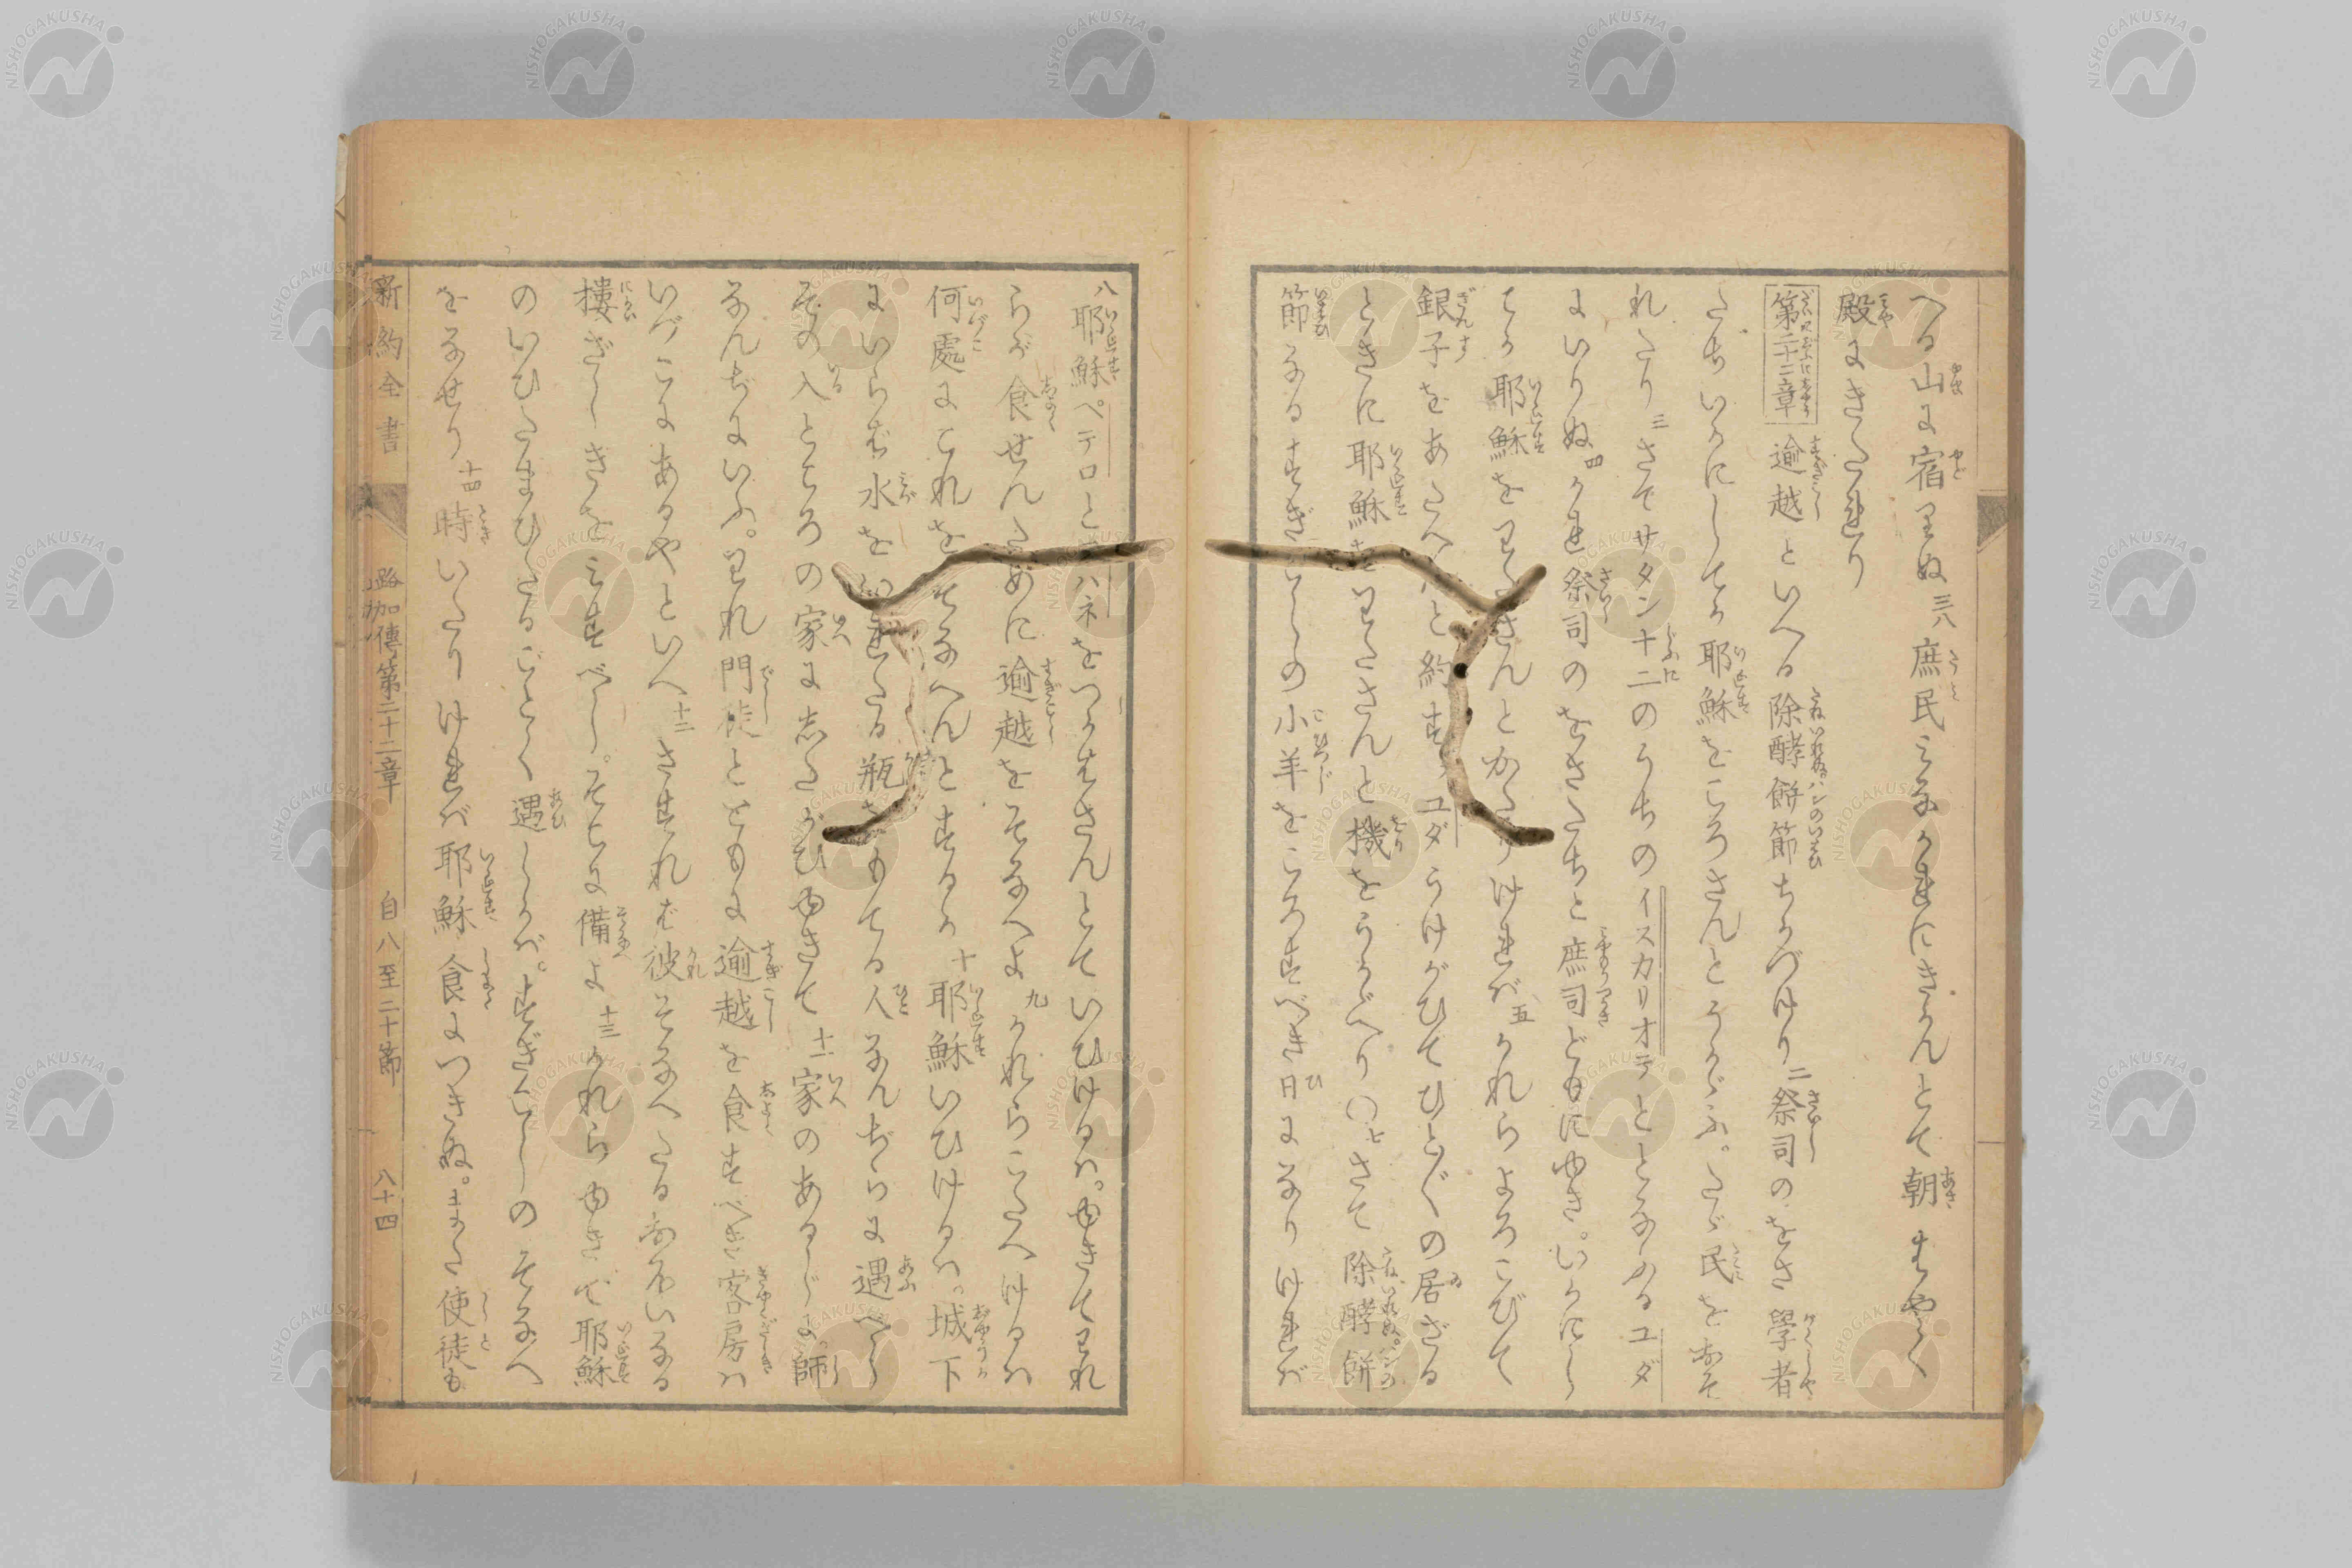 へる山に宿りぬ三八庶民みなかれにきかんとて朝はやく
殿にきたれり
第二十二章 逾越といへる除酵餅節ちかづけり二祭司のをさ學者
たちいかにしてか耶穌をころさんとうかゞふ。たゞ民をおそ
れたり三さてサタン十二のうちのイスカリオテととなふるユダ
にいりぬ四かれ祭司のをさたちと庶司どもにゆき。いかにし
てか耶穌をわたさんとかたりければ五かれらよろこびて
銀子をあたへんと約す ユダうけがひてひとびとの居ざる
ときに耶穌をわたさんと機をうかゞへり〇七さて除酵餅
節なるすぎこしの小羊をころすべき日になりければ
八耶穌ペテロとヨハネをつかはさんとていひけるハ。ゆきてわれ
らが食せんために逾越をそなへよ九かれらこたへけるハ
何處にこれをそなへんとするか十耶穌いひけるハ。城下
にいらば水をいれたる瓶をもてる人なんぢらに遇べし
その入ところの家にしたがひゆきて十一家のあるじに。師
なんぢにいふ。われ門徒とともに逾越を食すべき客房ハ
いづこにあるやといへ十二さすれば彼そなへたるおほいなる
樓ざしきをみすべし。そこに備よ十三かれらゆきて耶穌
のいひたまひたるごとく遇しかば。すぎこしのそなへ
をなせり十四時いたりければ耶穌食につきぬ。また使徒も
新約全書 路加傳第二十二章 自八至二十節 八十四